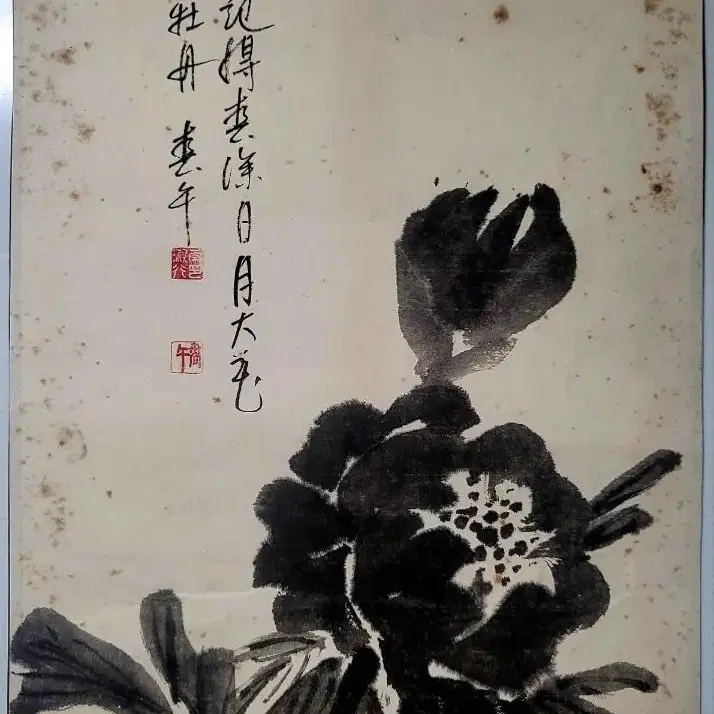 記得春深日月大花
牡丹 春午